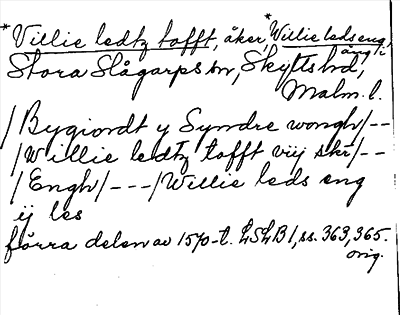 *Villie ledtz tofft, åker, *Willie leds eng,
äng i
Stora Slågarps sn, Skytts hd,
Malm. l.
/Bygiordt y Syndre wongh/--
/Willie ledtz tofft viij skr/--
/Engh/---/Willie leds eng
ij les
förra delen av 1570-t. LSLB 1, ss. 363, 365.
orig.